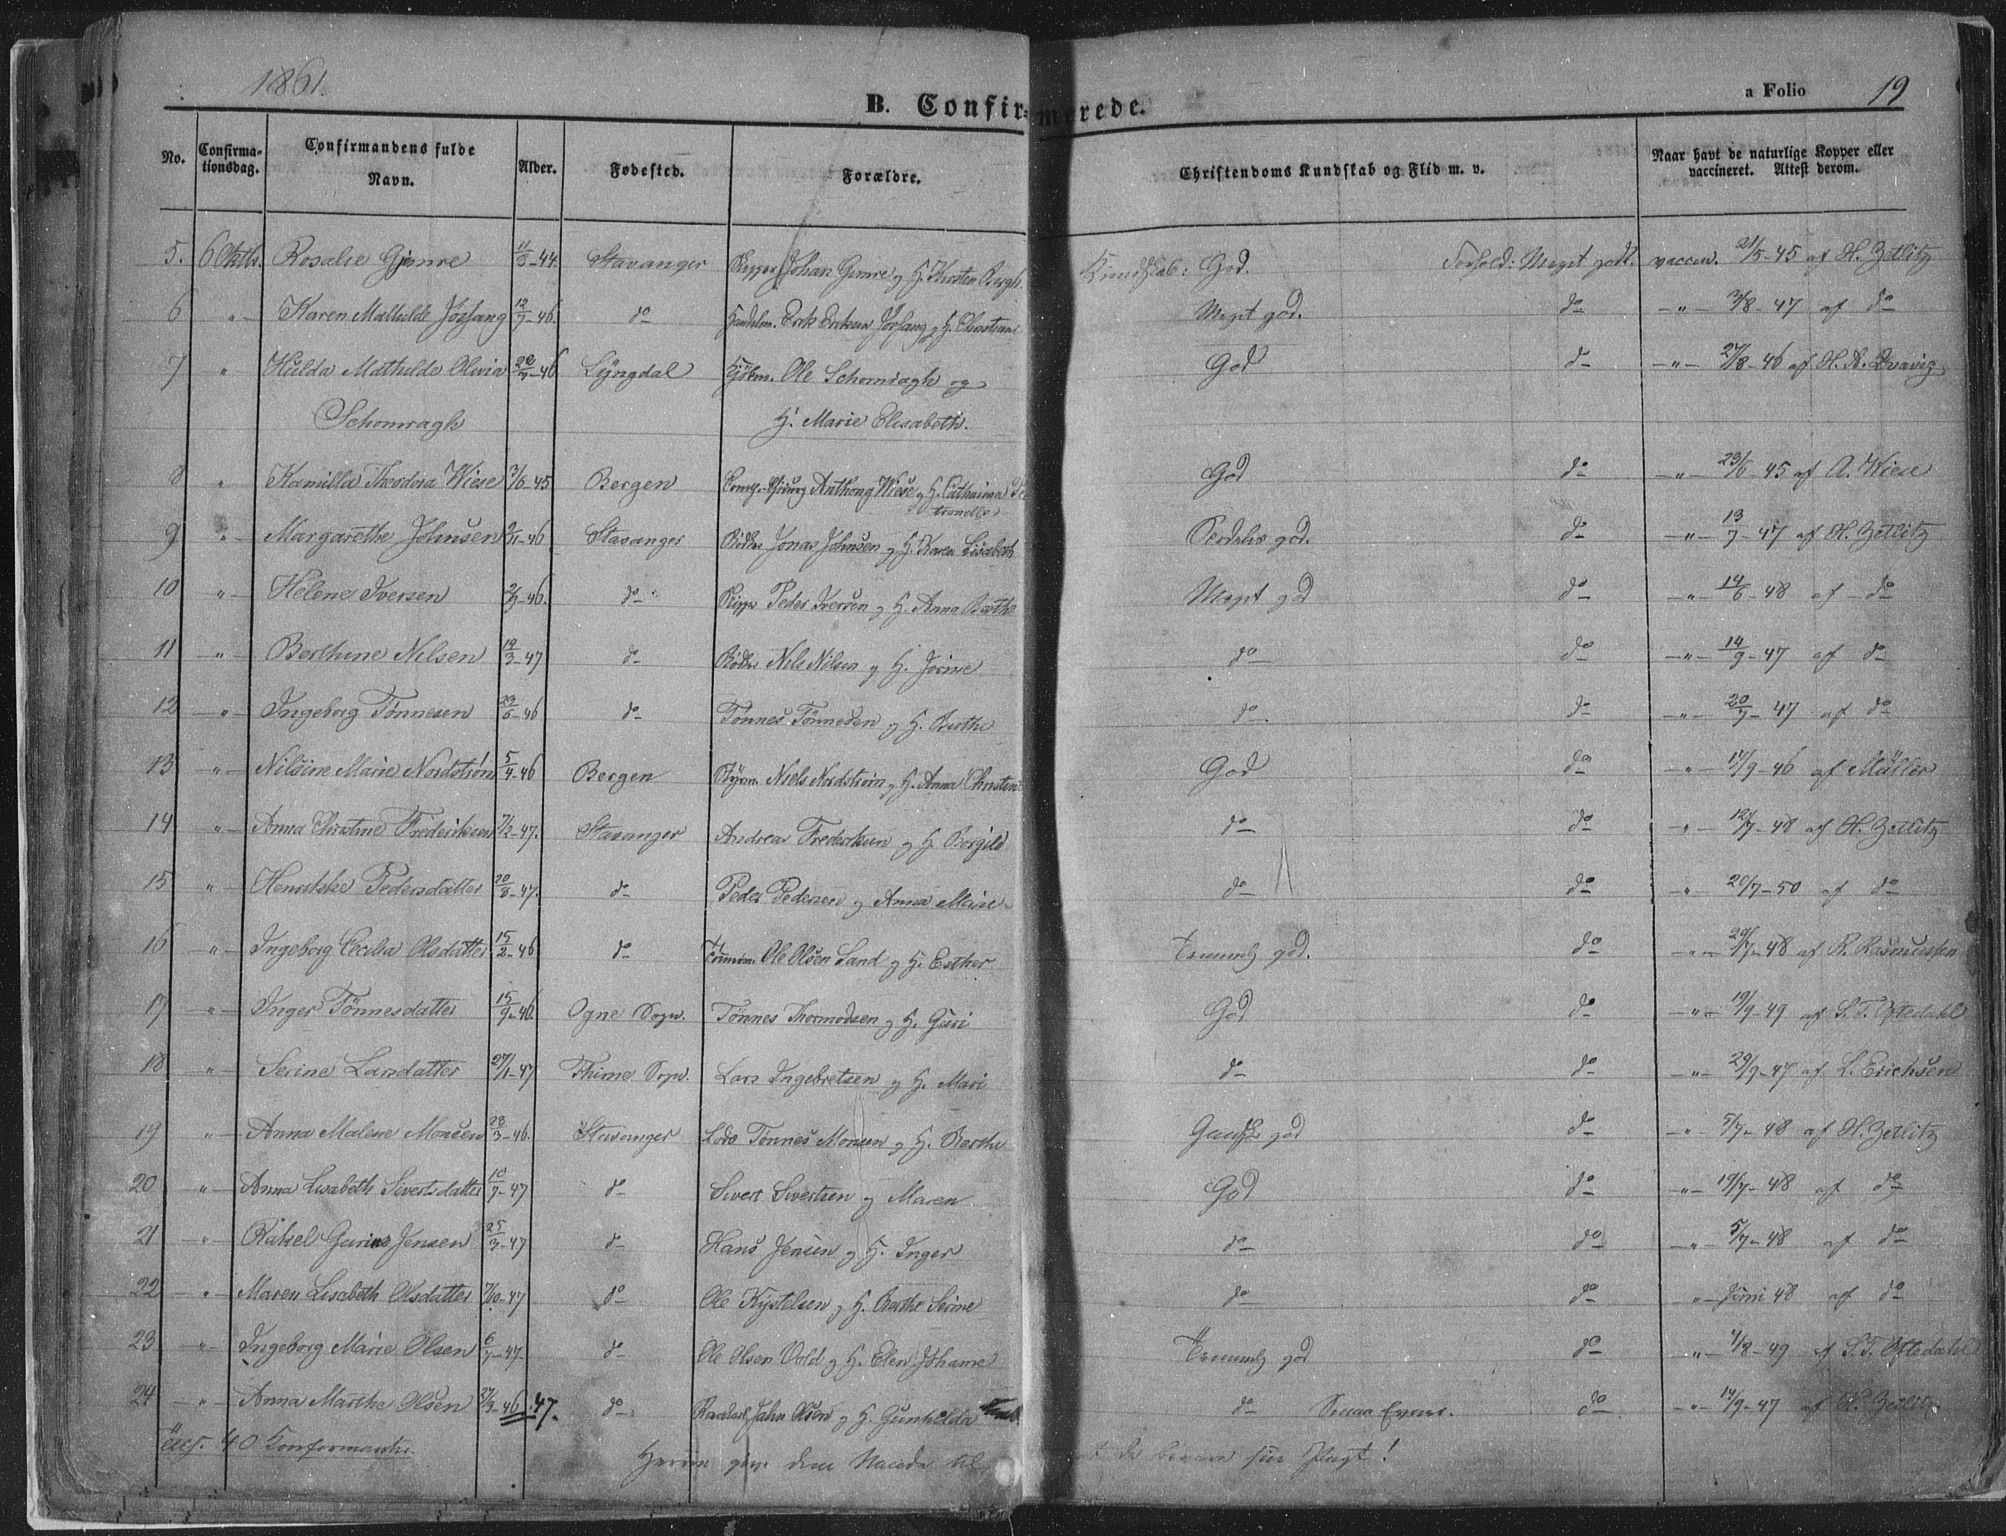 1861.
B. Confirmerede.
a Folio 19
No. Confirmationsdag. Confirmandens fulde Navn. Alder. Fødested. Forældre. Christendoms Kundskab og Flid m. v. Naar havt de naturlige Kopper eller vaccineret. Attest derom.
5. 6 Oktb. Rosalie Gjemre 11/8-44 Stavanger Johan Gemre og H. Kirsten Bergh. Kundskab: God. Forhold: Meget godt. vaccin. 21/5-45 af H. Zetlitz
6 „ Karen Mathilde Jørsang 12/7-46. do Handelsm. Erik Eriksen Jørsang og H. Christiane Meget god. do „ 3/8-47 af do
7 „ Hulda Mathilde Olivia 22/7-46 Lyngdal Kjøbm. Ole Schomragh og God do „ 27/8-46 af H. A. Qvavig
Schomragh H. Marie Elisabeth.
8 „ Kamilla Theodora Wiese 3/6-45 Bergen Anthony Wiese og H. Cathaina Pe God do „ 23/6-45 af A. Wiese
tronelle
9 „ Margarethe Johnsen 2/11-46 Stavanger Bødker Jonas Johnsen og H. Karen Lisabeth Serdeles god. do „ 13/7-47 af H. Zetlitz
10 „ Helene Iversen 2/9-46. do Peder Iversen og H. Anna Berthe Meget god do „ 14/6-48 af do
11 „ Berthine Nilsen 14/3-47 do Bødker Nils Nilsen og H. Jorine do do „ 14/9-47 af do
12 „ Ingeborg Tønnesen 23/6-46 do Tønnes Tønnesen og H. Berthe do. do „ 20/7-47 af do
13 „ Nilsine Marie Nordstrøm 5/4-46 Bergen Styrm. Niels Nordstrøm og H. Anna Christen God do „ 17/9-46 af Müller
14 „ Anna Christine Frederiksen 7/2-47. Stavanger Andreas Frederiksen og H. Borgild do do „ 12/7-48 af H. Zetlitz
15 „ Henrikke Pedersdatter 20/8-47. do Peder Pedersen og Anna Marie do do „ 20/7-50 af do
16 „ Ingeborg Cecilia Olsdatter 15/2-46 do Tømmerm. Ole Olsen Sand og H. Esther Temmelig god. do „ 20/7-48 af R. Rasmussen
17 „ Inger Tønnesdatter 15/9-46. Ogne Sogn. Tønnes Thormodsen og H. Guri God do „ 19/9-49 af S. T. Oftedahl
18 „ Serine Larsdatter 27/1-47 Thime Sogn. Lars Ingebretsen og H. Mari do do „ 29/9-47 af L. Erichsen
19 „ Anna Malene Monsen 28/3-46. Stavanger Lods Tønnes Monsen og H. Berthe Ganske god do „ 5/7-48 af H. Zetlitz
20 „ Anna Lisabeth Sivertsdatter 10/7-47 do Sivert Sivertsen og Maren God do „ 19/7-48 af do
21 „ Rakel Gurine Jensen 25/3-47 do Hans Jensen og H. Inger do do „ 5/7-48 af do
22 „ Maren Lisabeth Olsdatter 7/10-47 do Ole Kystelsen og H. Berthe Serine do do „ Juni 48 af do
23 „ Ingeborg Marie Olsen 6/7-47. do Ole Olsen Vold og H. Elen Johanne Temmelig god do „ 4/8-49 af S. T. Oftedahl
24 „ Anna Marthe Olsen 27/3-46.47. do Jahn Olsen og H. Gunhilda do Smaa Evner. do „ 14/9-47 af H. Zetlitz
40 Konfirmanter. Herren give dem Naade til